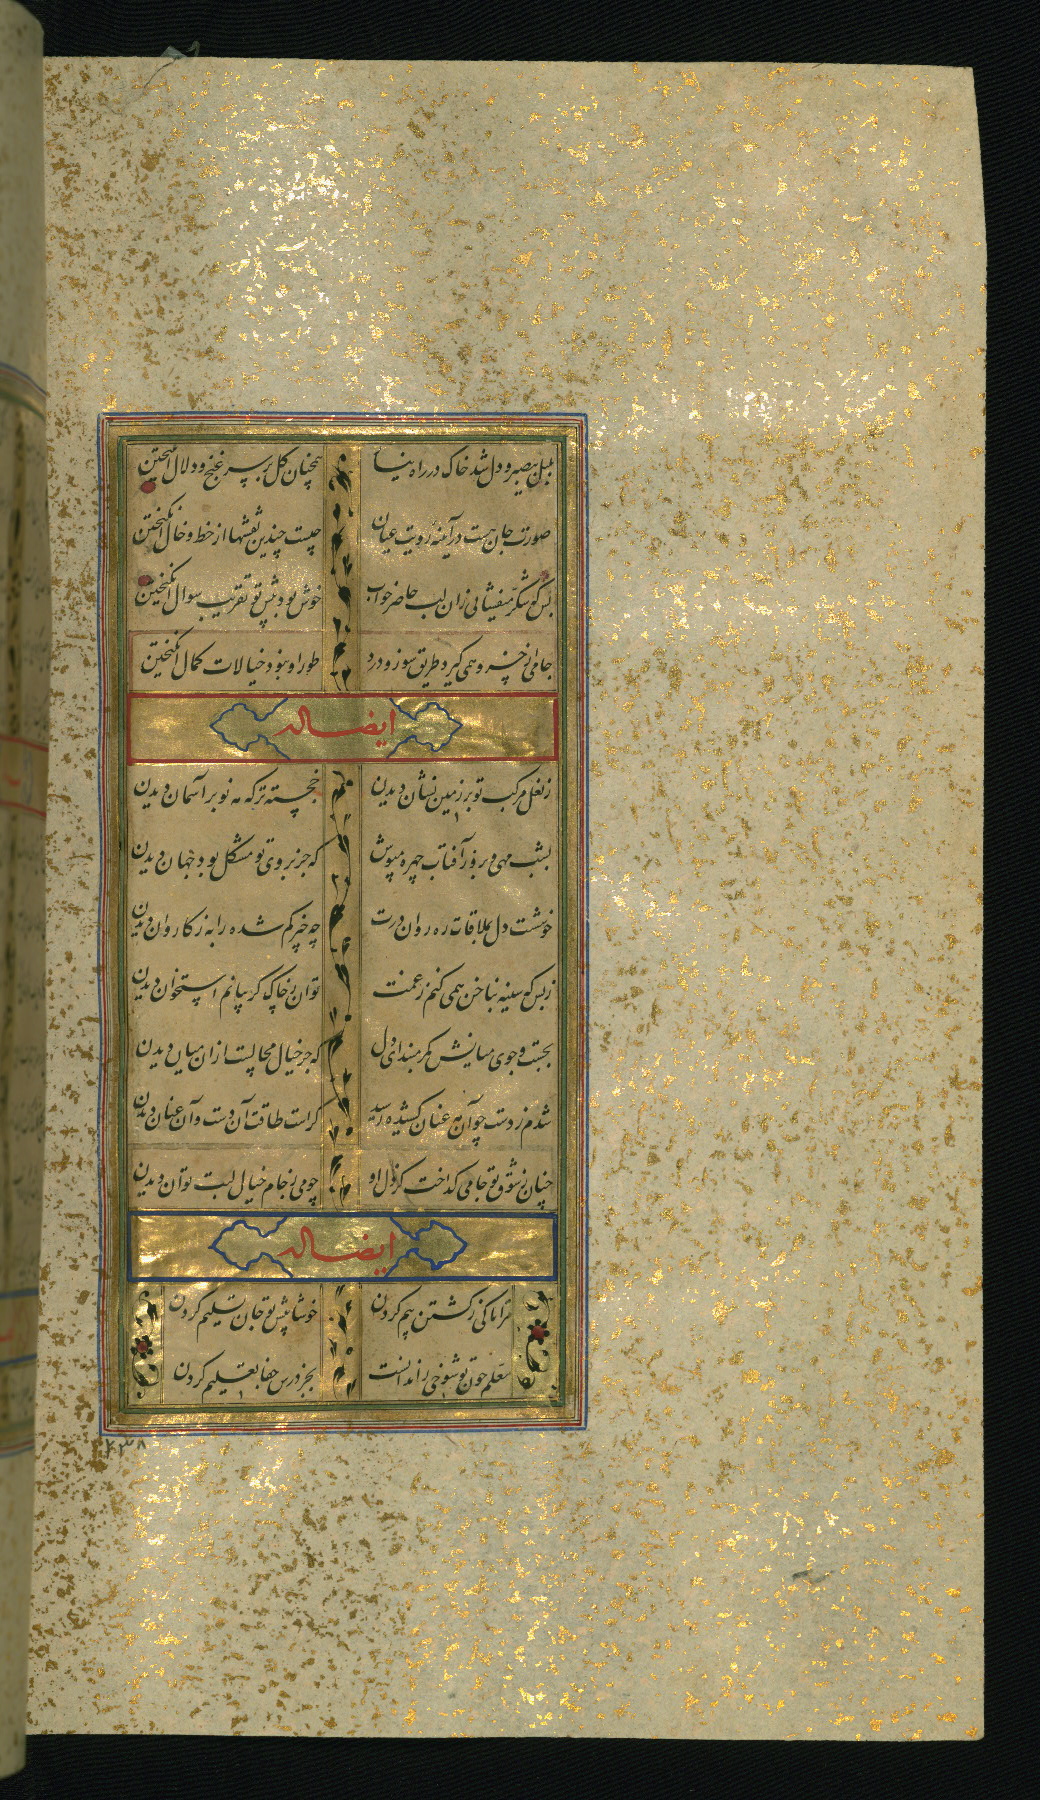 بلبل بیصبر و دل شد خاک در راه نیاز همچنان گل بر سر غنج و دلال انگیختن
صورت جان هست در آینه رویت عیان چیست چندین نقشها از خط و خال انگیختن
بس که شکر میفشانی زان لب حاضر جواب خوش بود پیش تو تقریب سوال انگیختن
جامی از خسرو همی گیرد طریق سوز و درد طور او نبود خیالات کمال انگیختن
ایضا له
ز نعل مرکب تو بر زمین نشان دیدن خجسته تر که مه نو بر آسمان دیدن
بشب مهی و بروز آفتاب چهره مپوش که جز بروی تو مشکل بود جهان دیدن
خوشست دل بملاقات ره روان درت چه خیر کم شده را به ز کاروان دیدن
ز بس که سینه بناخن همی کنم ز غمت توان ز چاک گریبانم استخوان دیدن
بجست و جوی میانش کمر مبند ای دل که جز خیال محالیست از ان میان دیدن
شدم ز دست چو آن مه عنان کشیده رسید کراست طاقت آن دست و آن عنان دیدن
چنان ز شوق تو جامی گداخت کز دل او چو می ز جام خیال لبت توان دیدن
ایضا له
ترا تا کی ز کشتن بیم کردن خوشا پیش تو جان تسلیم کردن
معلم چون تو شوخی را ندانست بجز درس جفا تعلیم کردن
۲۳۸